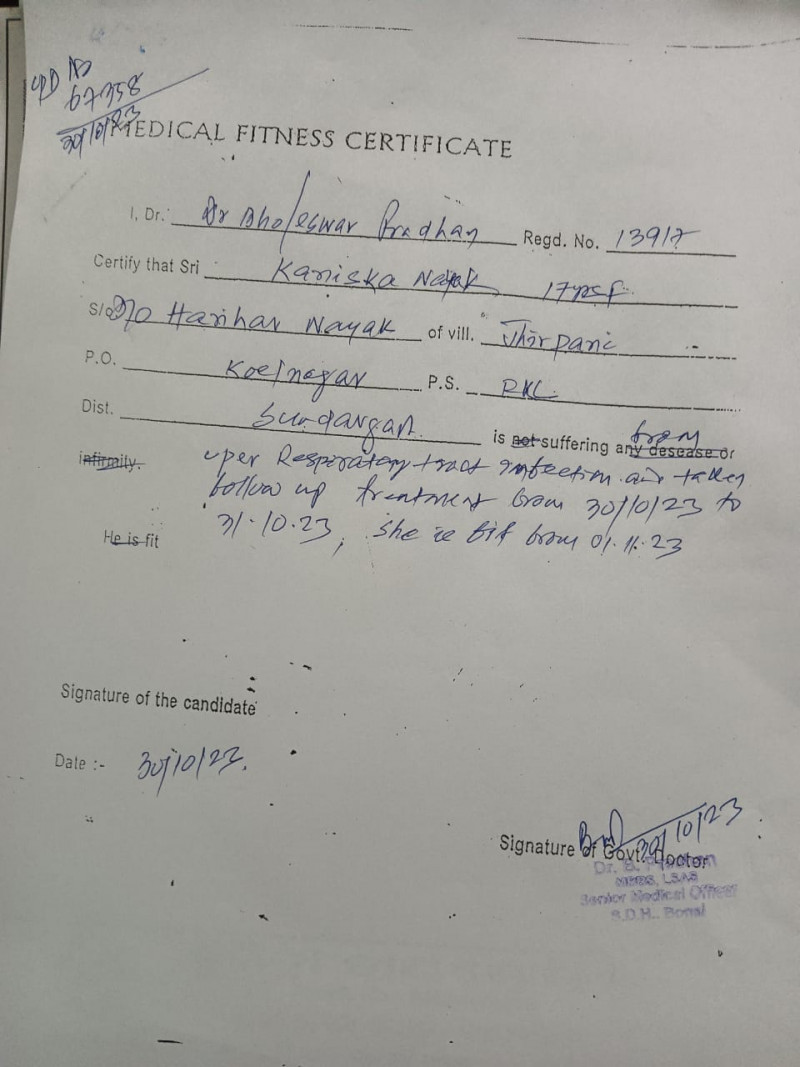 OPD No
67358
30/10/23
MEDICAL FITNESS CERTIFICATE
I, Dr. Dr Bholeswar Pradhan Regd. No. 13917
Certify that Sri Kaniska Nayak, 17yrs F.
S/o D/o Harihar Nayak of vill. Jhirpani
P.O. Koelnagar P.S. RKL
Dist. Sundargarh. is not suffering from any desease or
infirmily. uper Respiratory tract infection and taken
follow up treatment from 30/10/23 to
He is fit 31.10.23, she is fit from 01.11.23
Signature of the candidate
Date :- 30/10/23.
30/10/23
Signature of Govt. Doctor
Dr. B. Pradhan
MBBS, LSAS
Senior Medical Officer
S.D.H., Bonai